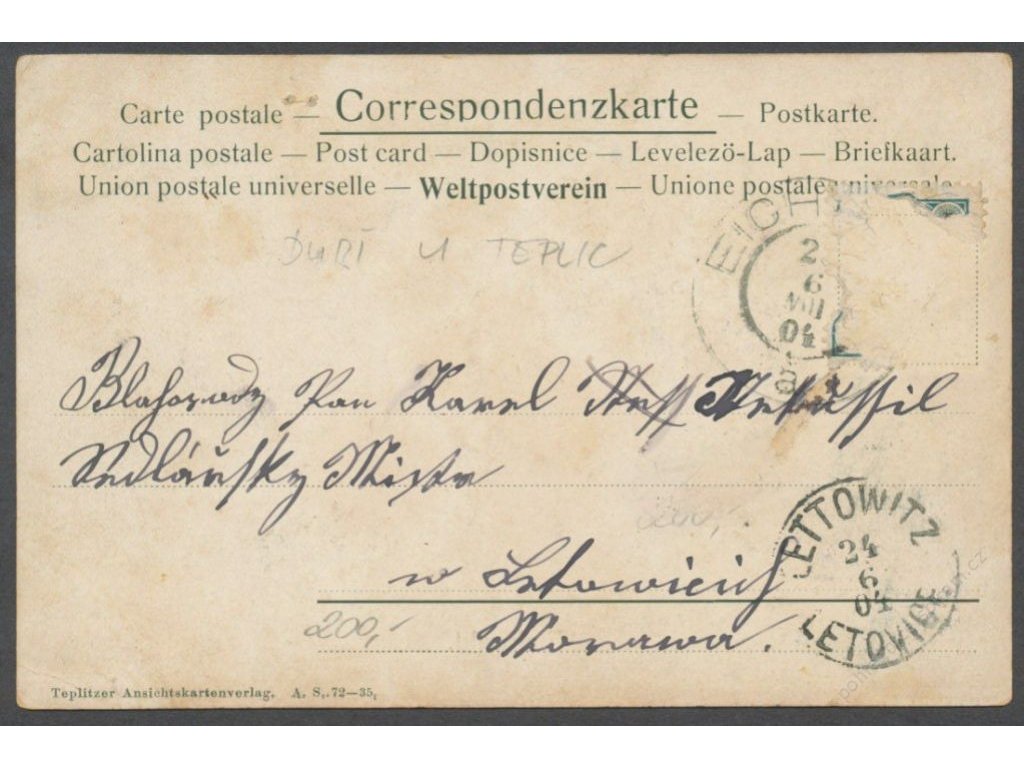 Carte postale — Correspondenzkarte — Postkarte.
Cartolina postale — Post card — Dopisnice — Levelezö-Lap — Briefkaart.
Union postale universelle — Weltpostverein — Unione postale universale
U TEPLIC
EICH
2
6
VIII
04
Blahorody Pan Karel Nekussil
Sedlářsky Mistr
200,-
LETTOWITZ
24
6
04
LETOVICE
w Letowicich
200,-
Morawa.
Teplitzer Ansichtskartenverlag. A. S. 72—35.